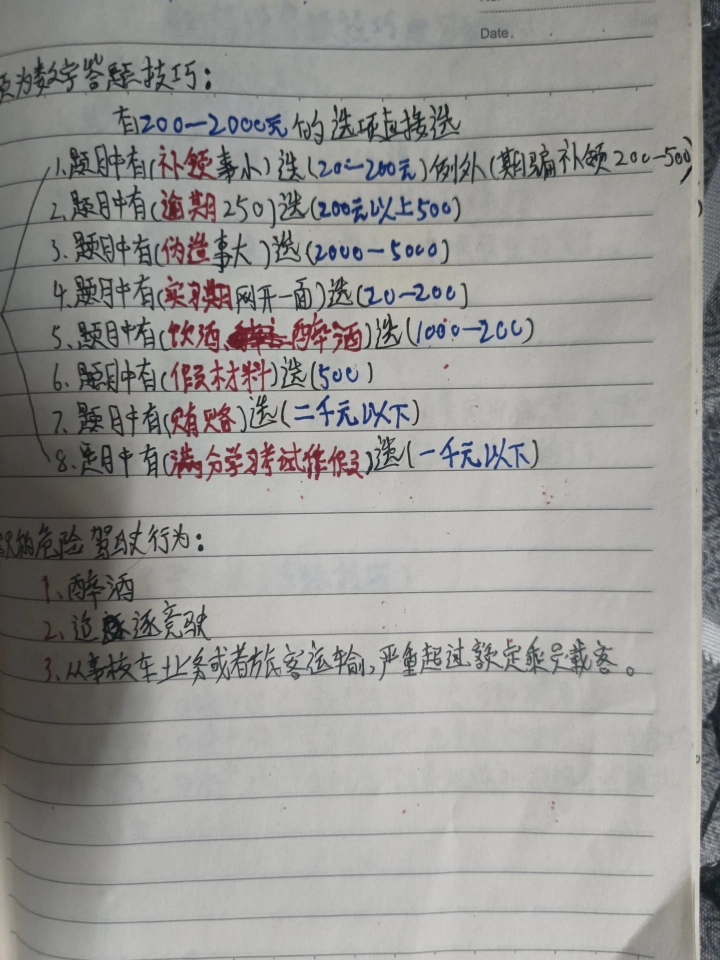 Date.
为数字答题技巧：
有200—2000元的选项直接选
1.题目中有(补领事小)选(20—200元)例外(期骗补领200—500)
2.题目中有(逾期250)选(200元以上500)
3.题目中有(伪造事大)选(2000—5000)
4.题目中有(实习期网开一面)选(20—200)
5.题目中有(饮酒、醉酒)选(1000—200)
6.题目中有(假材料)选(500)
7.题目中有(贿赂)选(二千元以下)
8.题目中有(满分学习考试作假)选(一千元以下)
的危险驾驶行为：
1、醉酒
2、追逐竞驶
3、从事校车业务或者旅客运输，严重超过额定乘员载客。